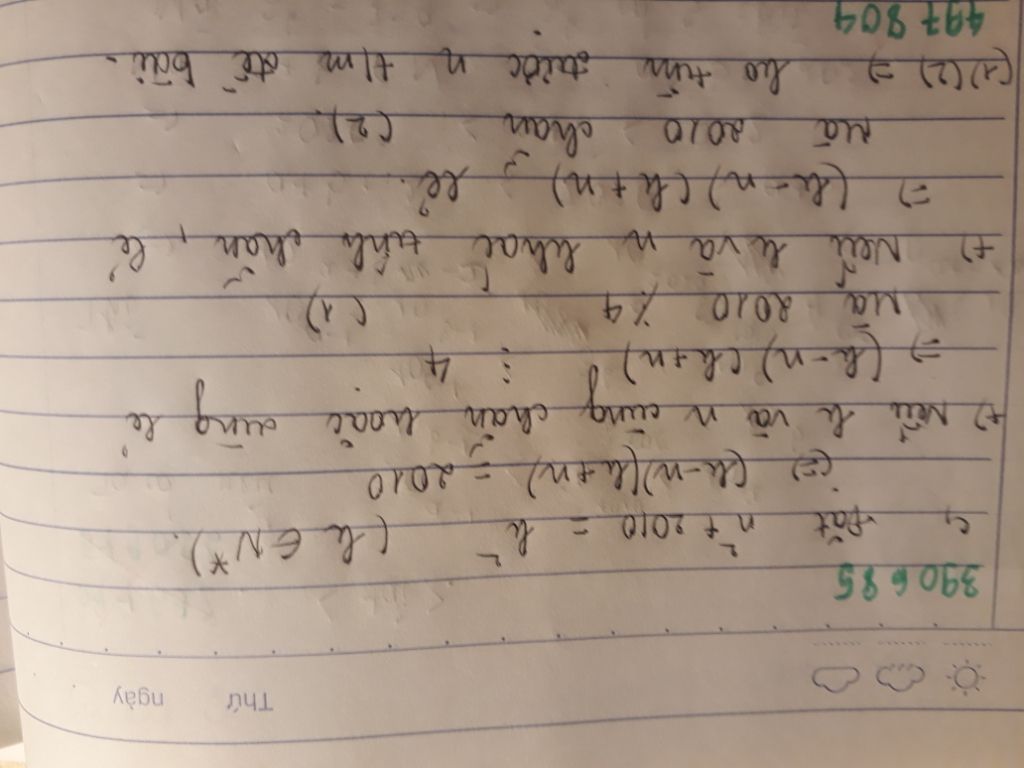 Thứ ngày
390685
Đặt n² + 2010 = k² (k ∈ N*).
(=) (k-n)(k+n) = 2010
+) Nếu k và n cùng chẵn hoặc cùng lẻ
=) (k-n)(k+n) ⋮ 4
Mà 2010 ⋮̸ 4 (1)
+) Nếu k và n khác tính chẵn, lẻ
=) (k-n)(k+n) lẻ.
Mà 2010 chẵn (2).
(1)(2) =) ko tìm được n t/m đề bài.
497804